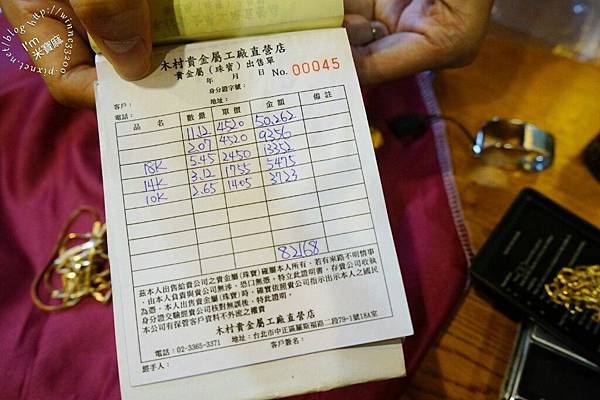 http://winnc33200
I'm
米寶麻
pixnet.net/blog
木村貴金屬工廠直營店
貴金屬(珠寶)出售單
年 月 日 No. 00045
身分證字號:
客戶:
電話: 地址:
品名 數量 單價 金額 備註
11.12 4520 50,262
2.07 4520 9356
18K 5.45 2450 13352
14K 3.12 1755 5475
10K 2.65 1405 3723
82168
茲本人出售給貴公司之貴金屬(珠寶)確屬本人所有,若有來路不明情事
,由本人負責與貴公司無涉,恐口無憑,特立此證明書,存貴公司收執
為憑。本人出售貴金屬(珠寶)時,確實依照貴公司指示出示本人之國民
身分證交驗照貴公司核對無誤後,特此證明。
本公司有保管客戶資料不外流之權責
木村貴金屬工廠直營店
電話:02-3365-3371 地址:台北市中正區羅斯福路二段79-1號1&2A室
經手人: 客戶簽名: